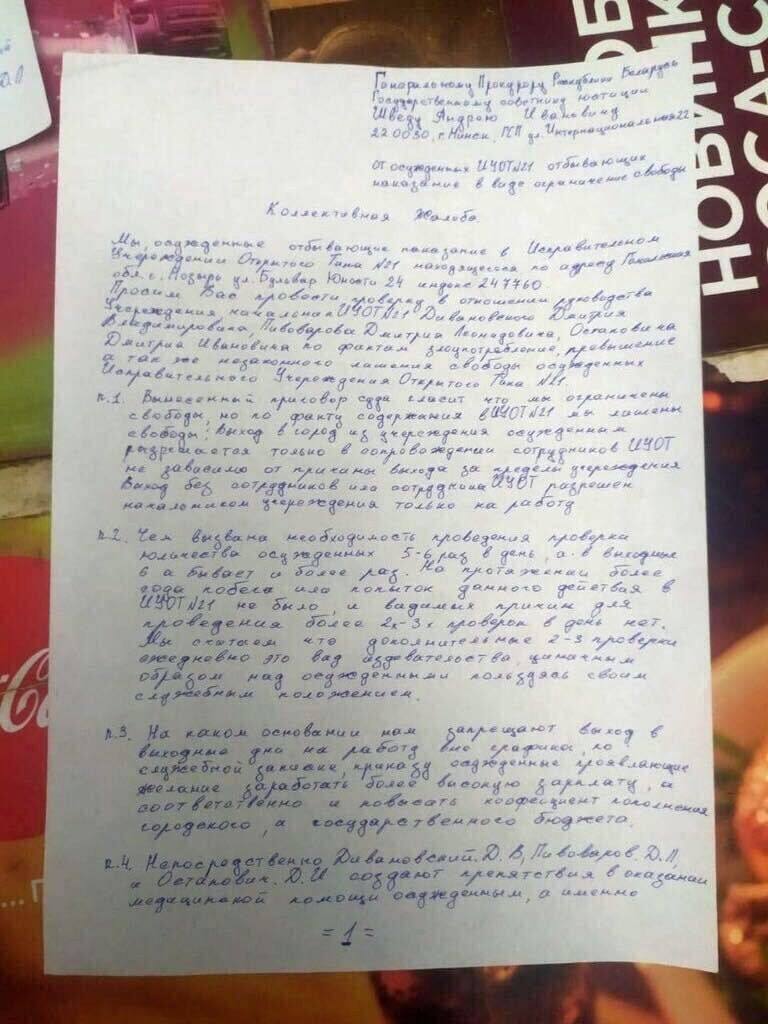 Генеральному Прокурору Республики Беларусь
Государственному советнику юстиции
Шведу Андрею Ивановичу
220030, г. Минск, ГСП ул. Интернациональная 22
от осужденных ИУОТ №21 отбывающих
наказание в виде ограничение свободы
Коллективная Жалоба.
Мы, осужденные отбывающие наказание в Исправительном
Учереждении Открытого Типа №21 находящегося по адресу Гомельская
обл. г. Мозырь ул. Бульвар Юности 24 индекс 247760.
Просим Вас провести проверку в отношении руководства
Учереждения начальник ИУОТ №21 Дивановского Дмитрия
Владимировича, Пивоварова Дмитрия Леонидовича, Остаповича
Дмитрия Ивановича по фактам злоупотребление, превышение
а так же незаконного лишения свободы осужденных
Исправительного Учереждения Открытого Типа №21.
п.1. Вынесенный приговор суда гласит что мы ограничены
свободы, но по факту содержания в ИУОТ №21 мы лишены
свободы: Выход в город из учереждения осужденным
разрешается только в сопровождении сотрудников ИУОТ
не зависимо от причины выхода за пределы учереждения
Выход без сотрудников или сотрудника ИУОТ разрешен
начальником учереждения только на работу
п.2. Чем вызвана необходимость проведения проверки
количества осужденных 5-6 раз в день, а в выходные
6 а бывает и более раз. На протяжении более
года побега или попыток данного действия в
ИУОТ №21 не было, и видимых причин для
проведения более 2х-3х проверок в день нет.
Мы считаем что дополнительные 2-3 проверки
ежедневно это вид издевательства, циничным
образом над осужденными пользуясь своим
служебным положением.
п.3. На каком основании нам запрещают выход в
выходные дни на работу вне графика, по
служебной записке, приказу осужденные проявляющие
желание заработать более высокую зарплату, а
соответственно и повысать коофециент пополнения
городского, а государственного бюджета.
п.4. Непосредственно Дивановский. Д. В, Пивоваров. Д. Л,
и Остапович. Д. И создают препятствия в оказании
медицинской помощи осужденным, а именно
= 1 =
НОВИНК
КОСА-С